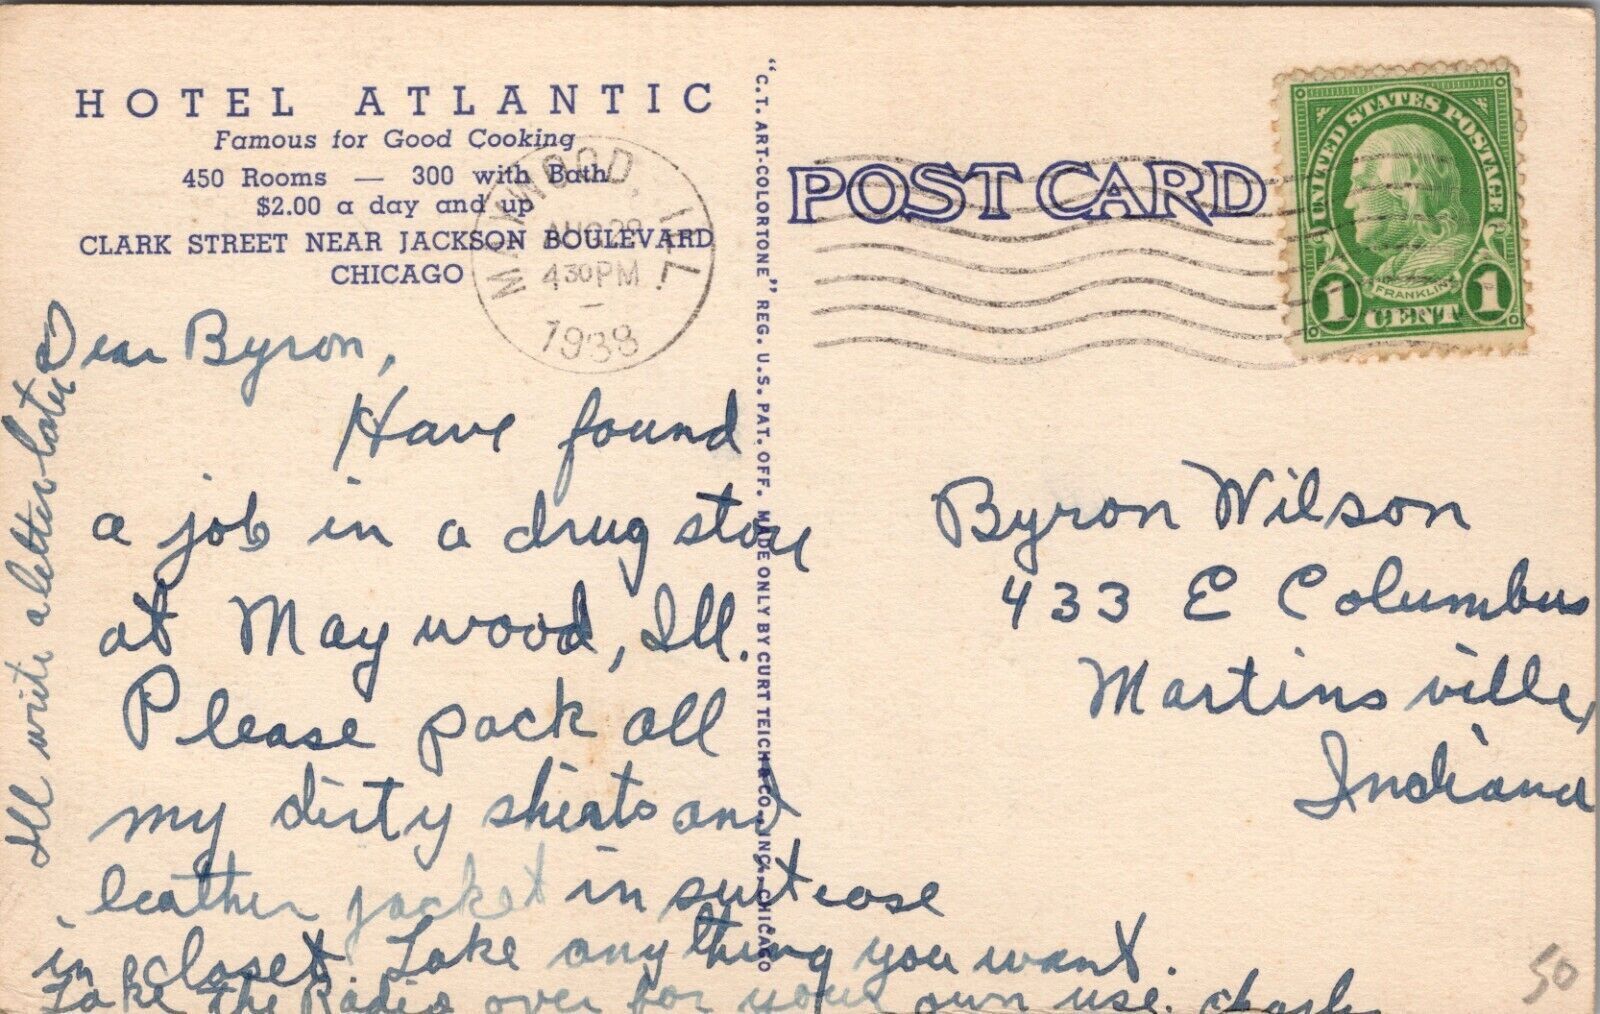 HOTEL ATLANTIC
Famous for Good Cooking
450 Rooms — 300 with Bath
$2.00 a day and up
CLARK STREET NEAR JACKSON BOULEVARD
CHICAGO
MAYWOOD, ILL.
AUG 29
430PM
1938
"C.T. ART-COLORTONE" REG. U.S. PAT. OFF. MADE ONLY BY CURT TEICH & CO., INC., CHICAGO
POST CARD
UNITED STATES POSTAGE
FRANKLIN
1 CENT 1
Dear Byron,
Have found
a job in a drug store
at Maywood, Ill.
Please pack all
my dirty shirts and
leather jacket in suitcase
in closet. Take anything you want.
Take the Radio over for your own use. Charles
I'll write a letter later
Byron Wilson
433 E Columbus
Martinsville,
Indiana
50